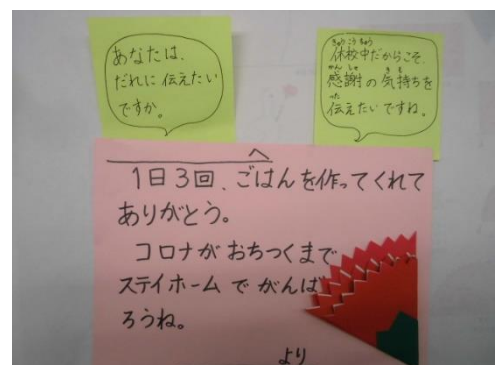 あなたは、
だれに伝えたい
ですか。
きゅうこうちゅう
休校中だからこそ、
かんしゃ きも
感謝の気持ちを
つた
伝えたいですね。
へ
1日3回、ごはんを作ってくれて
ありがとう。
コロナがおちつくまで
ステイホームでがんば
ろうね。
より